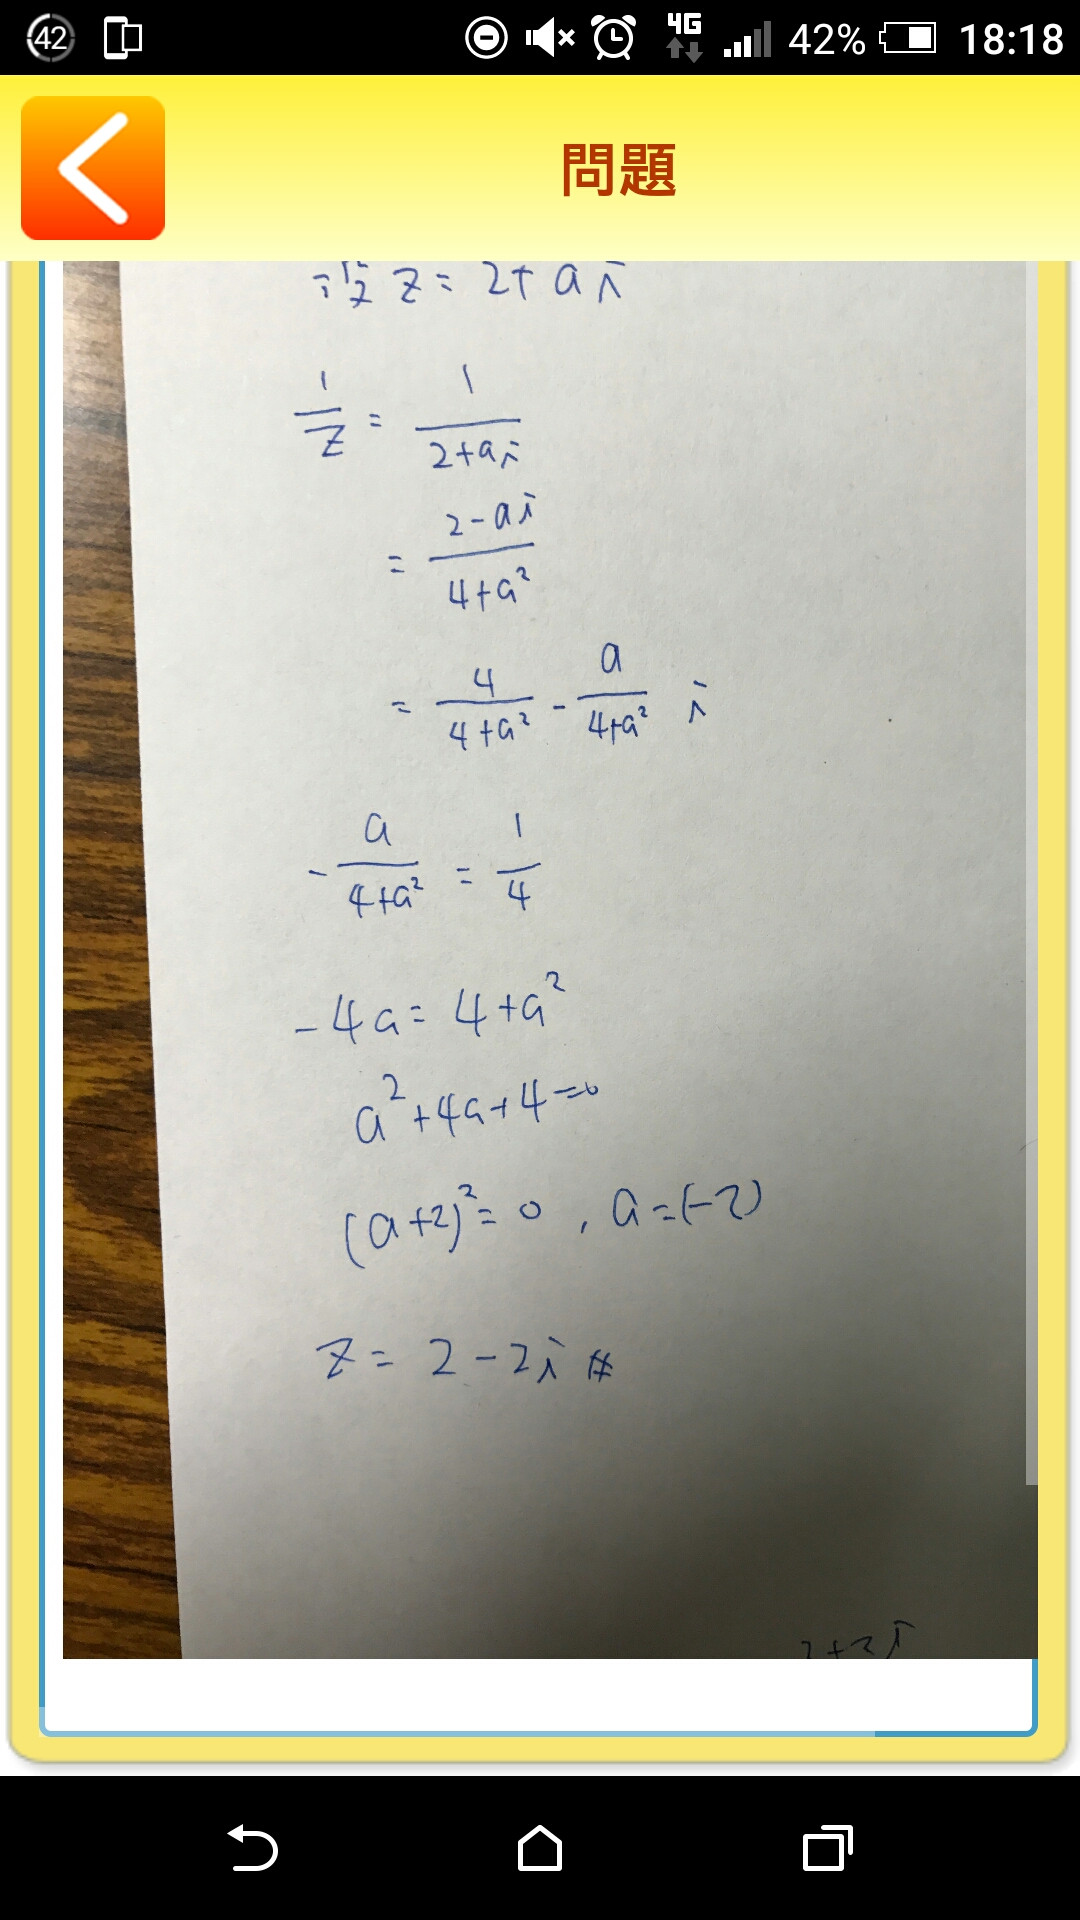 42 4G 42% 18:18
問題
設 z = 2+ai
1/z = 1/(2+ai)
= (2-ai)/(4+a²)
= 4/(4+a²) - a/(4+a²) i
- a/(4+a²) = 1/4
-4a = 4+a²
a²+4a+4=0
(a+2)²=0 , a=(-2)
z = 2-2i #